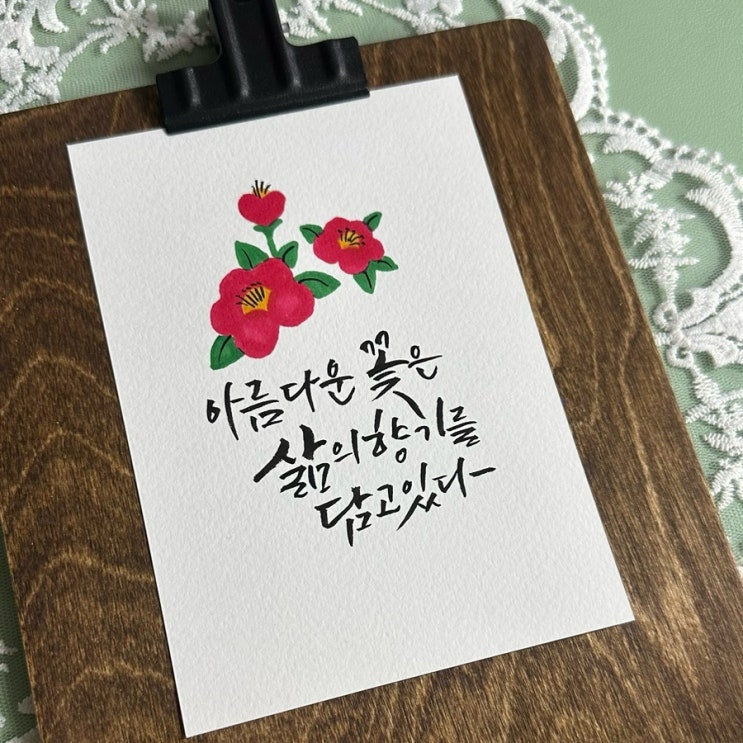 아름다운 꽃은
삶의 향기를
담고있다